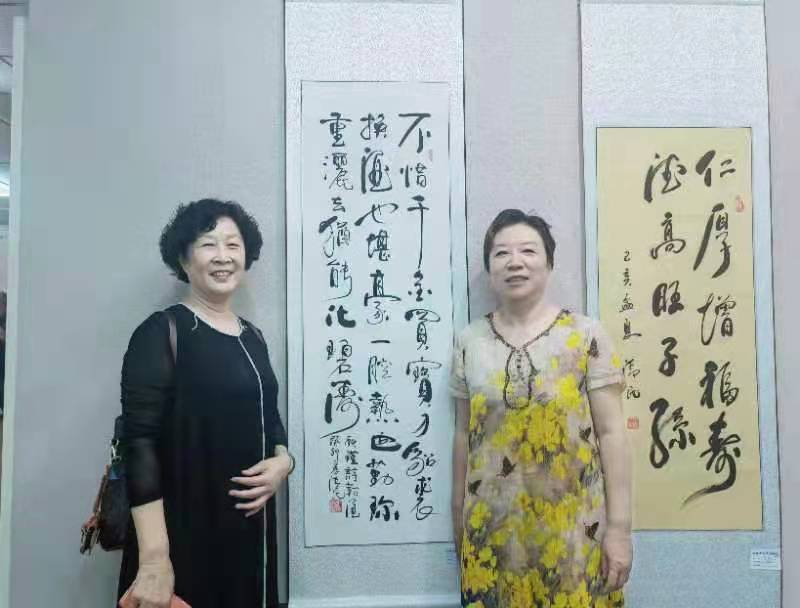 不惜千金買寶刀貂裘
換酒也堪豪一腔熱血勤珍
重灑去猶能化碧濤
秋瑾詩對酒
仁厚增福寿
德高旺子孫
己亥孟夏